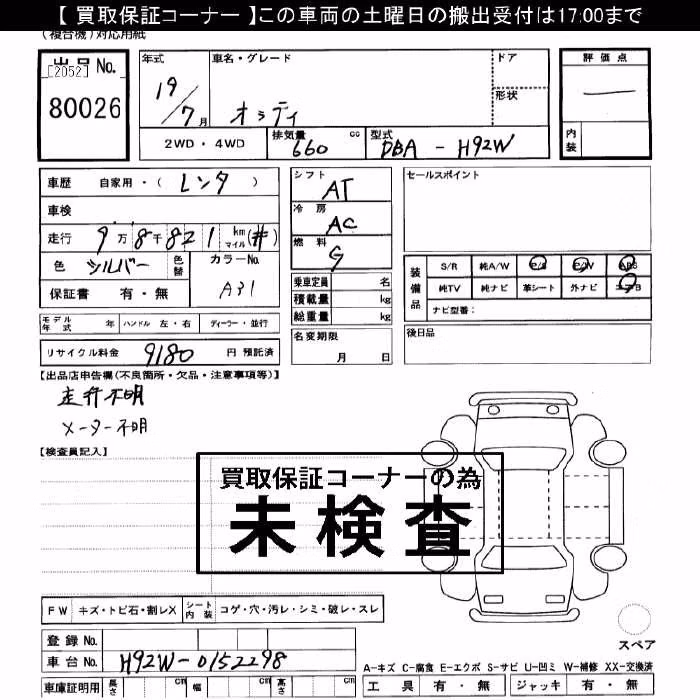 【 買取保証コーナー 】この車両の土曜日の搬出受付は17:00まで
(複合機)対応用紙
出品 No.
[2052]
80026
年式
19/7月
車名・グレード
オッティ
ドア
形状
評価点
内装
2WD・4WD
排気量 660 cc
型式 DBA - H92W
車歴 自家用・( レンタ )
車検
走行 9万8千821 km マイル (#)
色 シルバー 色替
カラーNo. A31
保証書 有・無
シフト AT
冷房 AC
燃料 G
乗車定員 名
積載量 kg
総重量 kg
セールスポイント
装備品
S/R 純A/W P/S P/W ABS
純TV 純ナビ 革シート 外ナビ エアB
ナビ型番:
モデル年式 年 ハンドル 左・右 ディーラー・並行
リサイクル料金 9180 円 預託済
名変期限 月 日
後日品
【出品店申告欄(不良箇所・欠品・注意事項等)】
走行不明
メーター不明
【検査員記入】
買取保証コーナーの為
未検査
FW キズ・トビ石・割レX シート内装 コゲ・穴・汚レ・シミ・破レ・スレ
登録 No.
車台 No. H92W-0152298
車庫証明用 長さ cm 幅 cm 高さ cm
スペア
A-キズ C-腐食 E-エクボ S-サビ U-凹ミ W-補修 XX-交換済
工具 有・無 ジャッキ 有・無